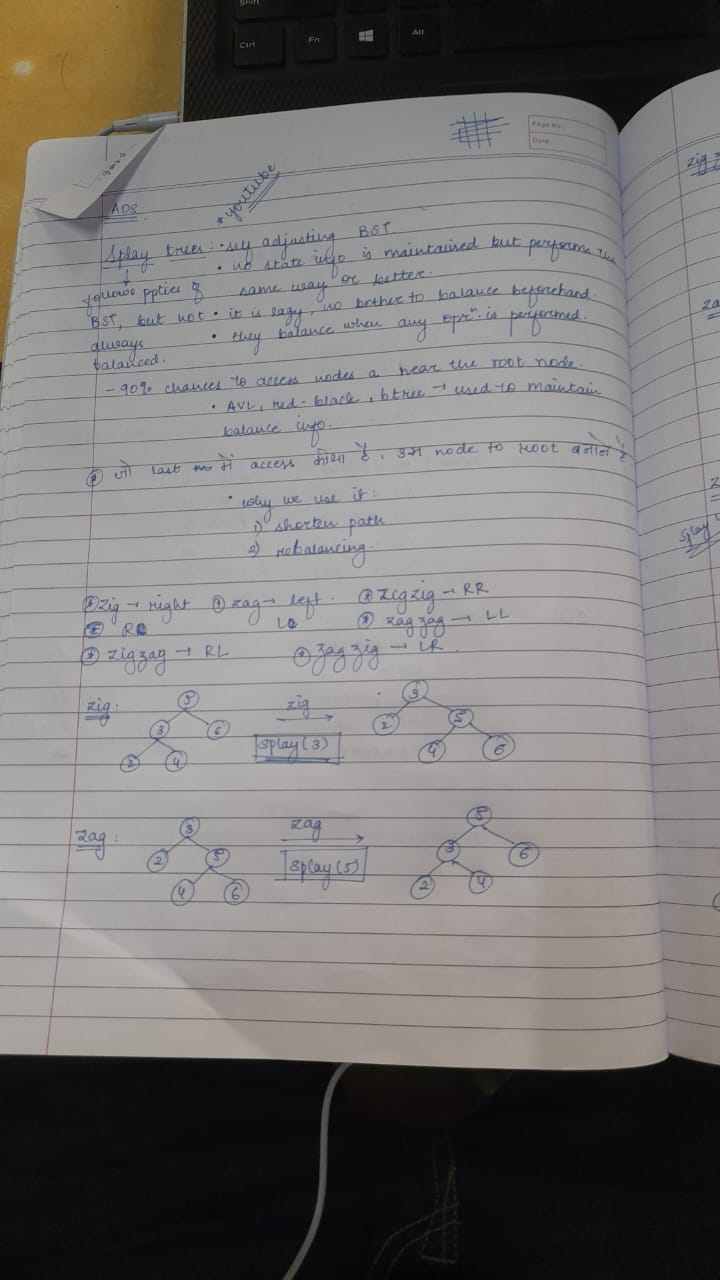 Shift
Ctrl
Fn
Alt
Page No.:
Date:
ADS
* youtube
Splay trees: • self adjusting BST.
• no state info is maintained but performs the
same way or better.
follows ppties of
BST, but not
always
balanced.
• it is lazy, no bother to balance beforehand.
• they balance when any oprn. is performed.
- 90% chances to access nodes a near the root node.
• AVL, red-black, btree → used to maintain
balance info.
जो last में access किया है, उस node to root बनाते है
• why we use it:
1) shorten path
2) rebalancing.
zig → right zag → left. zigzig → RR
zagzag → LL
zigzag → RL zagzig → LR.
zig:
5
3 6
2 4
zig
splay(3)
3
2 5
4 6
zag:
3
2 5
4 6
zag
splay(5)
5
3 6
2 4
zig
za
z
splay